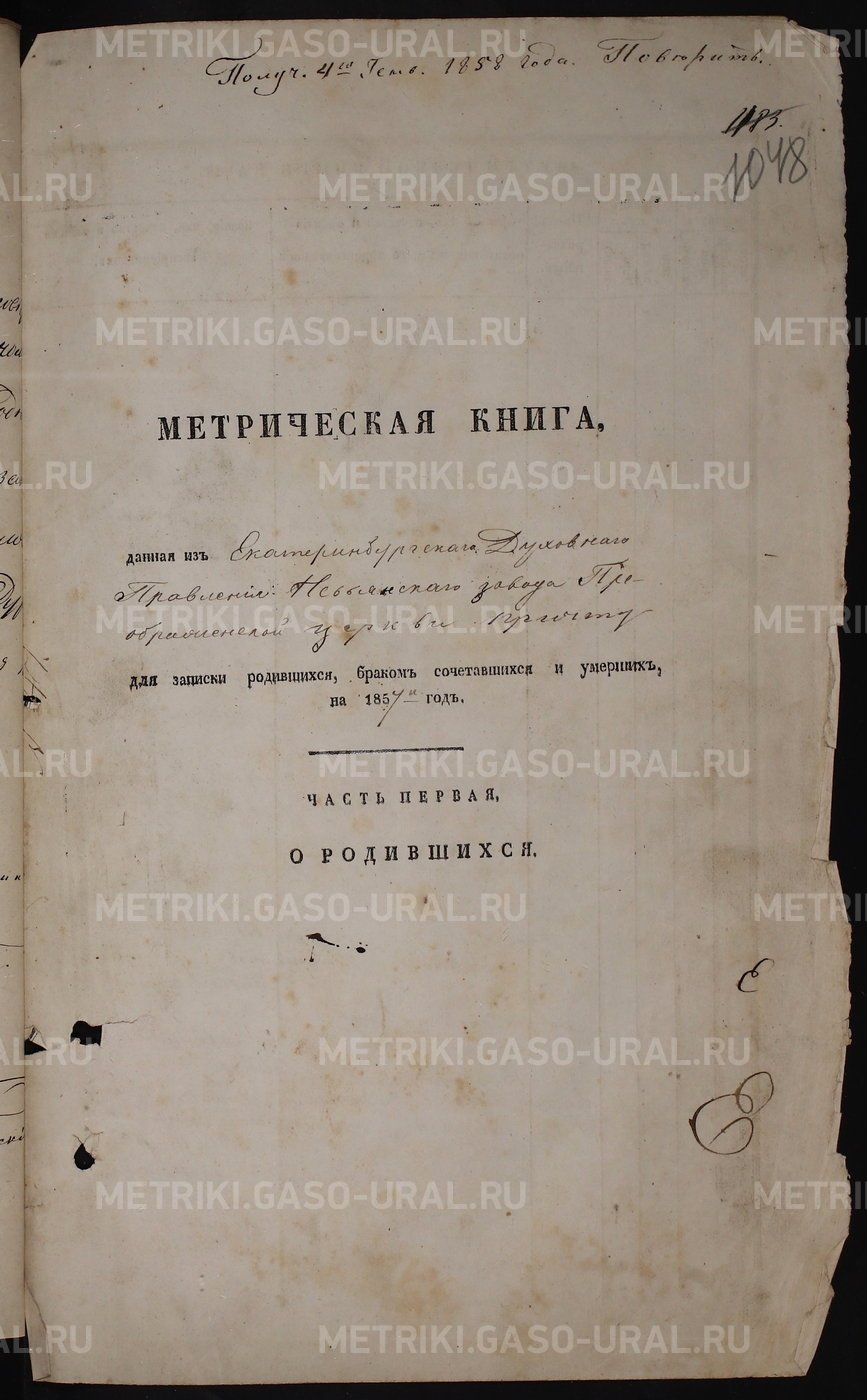 Получ. 4го Генв. 1858 года. Повѣрить.
485.
1048
МЕТРИЧЕСКАЯ КНИГА,
данная изъ Екатеринбургскаго Духовнаго
Правленія Невьянскаго завода Пре-
ображенской церкви причту
для записки родившихся, бракомъ сочетавшихся и умершихъ,
на 1857й годъ.
ЧАСТЬ ПЕРВАЯ,
О РОДИВШИХСЯ.
Е
Е
METRIKI.GASO-URAL.RU